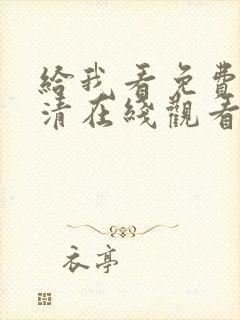 給我看免費
清在綫觀看
衣亭